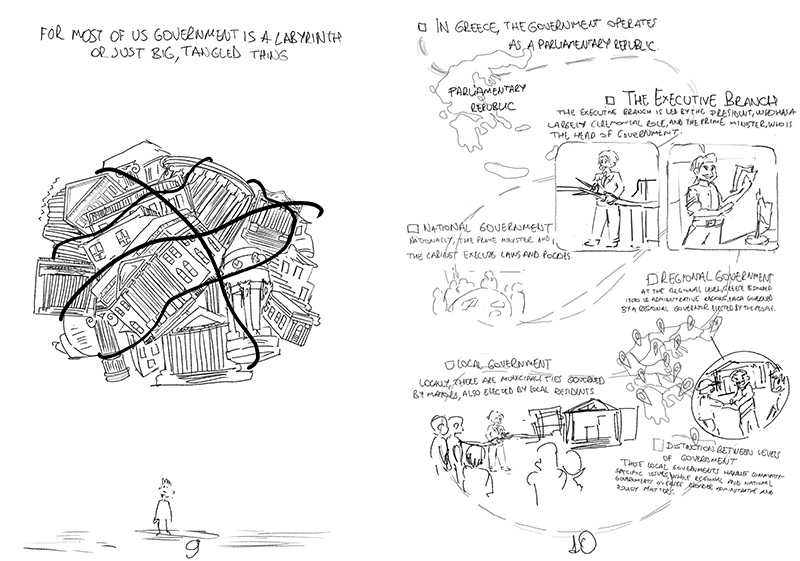 FOR MOST OF US GOVERNMENT IS A LABYRINTH
OR JUST BIG, TANGLED THING
9
IN GREECE, THE GOVERNMENT OPERATES
AS A PARLIAMENTARY REPUBLIC.
PARLIAMENTARY
REPUBLIC
THE EXECUTIVE BRANCH
THE EXECUTIVE BRANCH IS LED BY THE PRESIDENT, WHO HAS A
LARGELY CEREMONIAL ROLE, AND THE PRIME MINISTER, WHO IS
THE HEAD OF GOVERNMENT.
NATIONAL GOVERNMENT
NATIONALLY, THE PRIME MINISTER AND
THE CABINET EXECUTE LAWS AND POLICIES.
REGIONAL GOVERNMENT
AT THE REGIONAL LEVEL, GREECE IS DIVIDED
INTO 13 ADMINISTRATIVE REGIONS, EACH GOVERNED
BY A REGIONAL GOVERNOR ELECTED BY THE PEOPLE.
LOCAL GOVERNMENT
LOCALLY, THERE ARE MUNICIPALITIES GOVERNED
BY MAYORS, ALSO ELECTED BY LOCAL RESIDENTS
DISTINCTION BETWEEN LEVELS
OF GOVERNMENT
THESE LOCAL GOVERNMENTS HANDLE COMMUNITY-
SPECIFIC ISSUES, WHILE REGIONAL AND NATIONAL
GOVERNMENTS OVERSEE BROADER ADMINISTRATIVE AND
POLICY MATTERS.
10